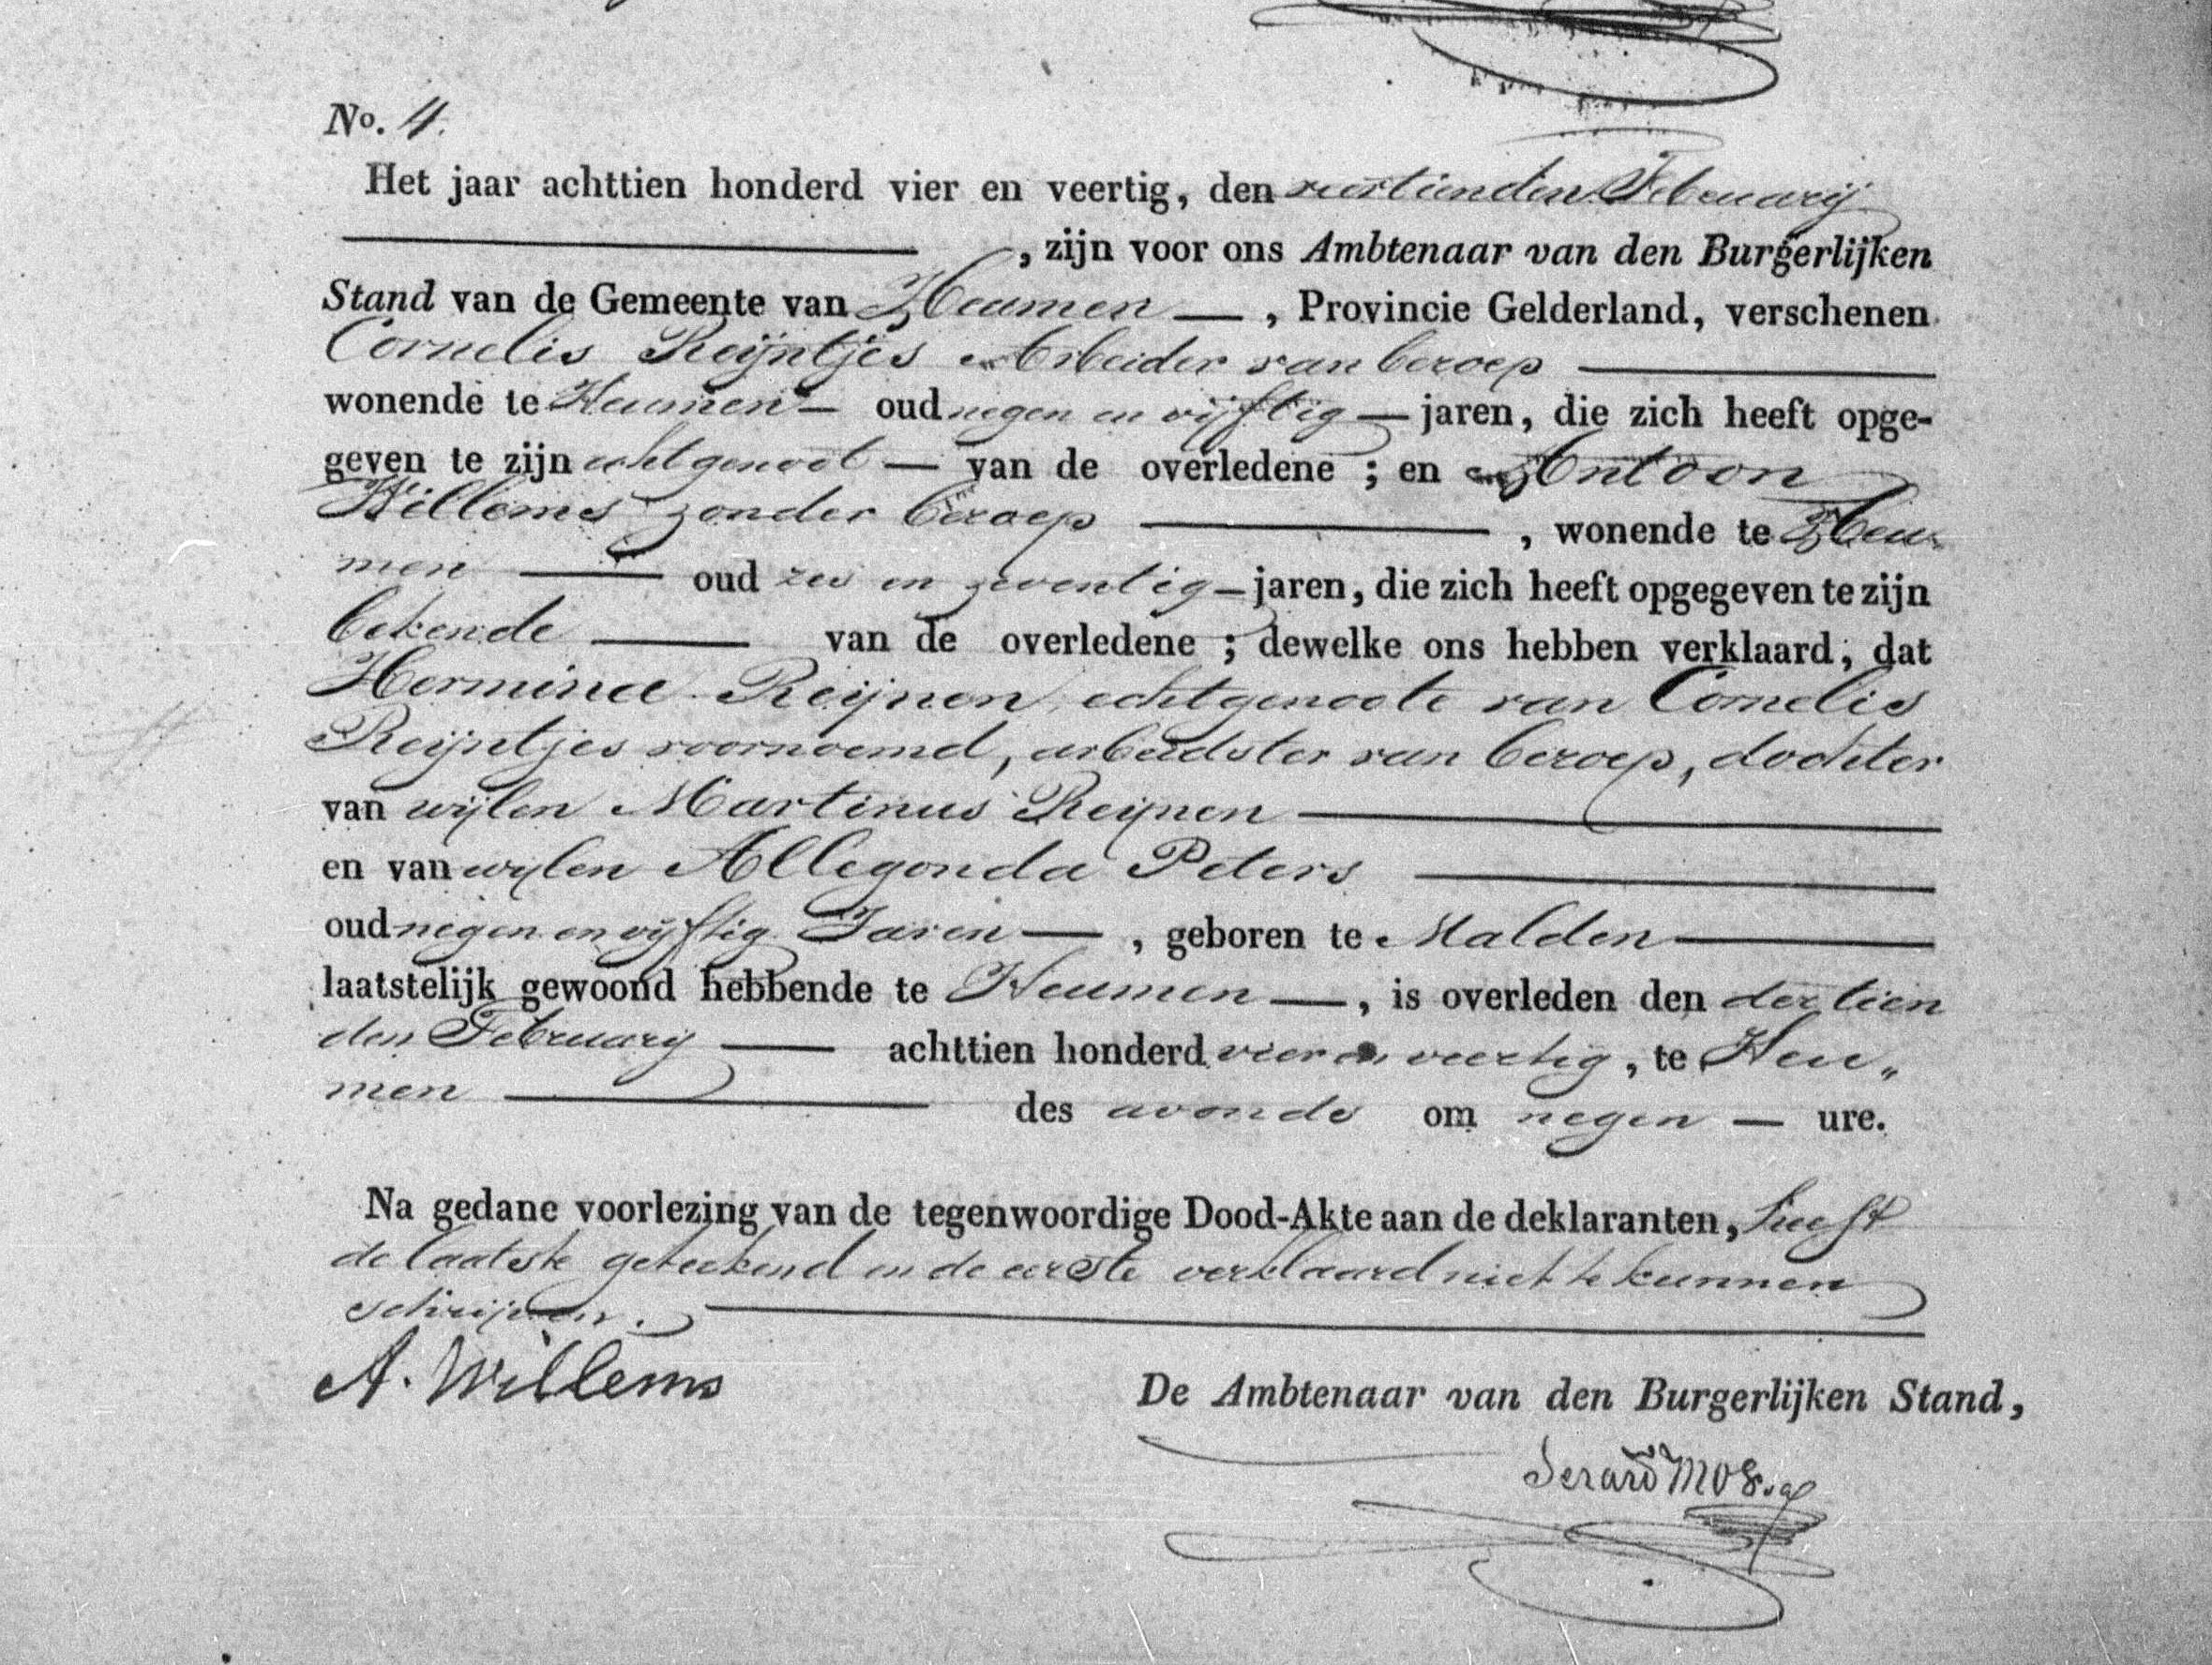 No. 4.
Het jaar achttien honderd vier en veertig, den veertienden February
, zijn voor ons Ambtenaar van den Burgerlijken
Stand van de Gemeente van Heumen — , Provincie Gelderland, verschenen
Cornelis Reijntjes Arbeider van beroep
wonende te Heumen — oud negen en vijftig — jaren, die zich heeft opge-
geven te zijn echtgenoot — van de overledene ; en Antoon
Willems zonder beroep — , wonende te Heu-
men — oud zes en zeventig — jaren, die zich heeft opgegeven te zijn
bekende — van de overledene ; dewelke ons hebben verklaard, dat
Hermina Reijnen echtgenoote van Cornelis
Reijntjes voornoemd, arbeidster van beroep, dochter
van wijlen Martinus Reijnen
en van wijlen Allegonda Peters
oud negen en vijftig Jaren — , geboren te Malden
laatstelijk gewoond hebbende te Heumen — , is overleden den dertien
den February — achttien honderd vier en veertig, te Heu„
men — des avonds om negen — ure.
Na gedane voorlezing van de tegenwoordige Dood-Akte aan de deklaranten, heeft
de laatste geteekend en de eerste verklaard niet te kunnen
schrijven.
A. Willems
De Ambtenaar van den Burgerlijken Stand,